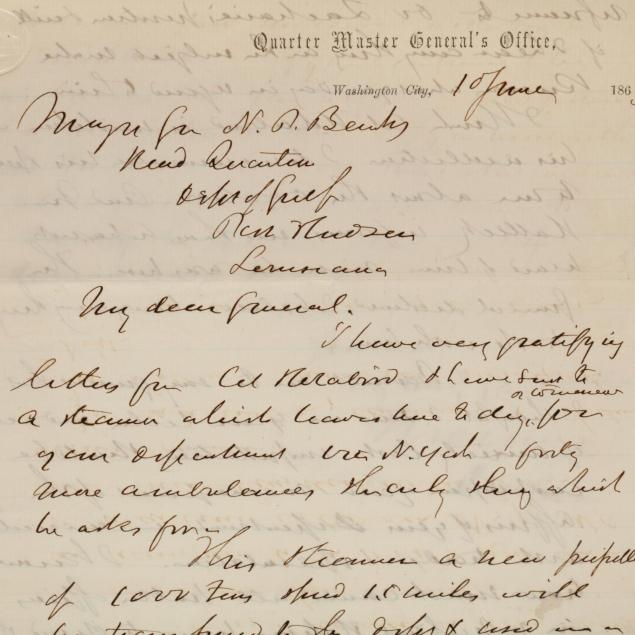 Quarter Master General's Office,
Washington City, 10 June 186
Major Gen N. P. Banks
Head Quarters
Dept of Gulf
Port Hudson
Louisiana
My dear General.
I have very gratifying
letters from Col Holabird & have sent to
or tomorrow
a steamer which leaves here to day, for
your department via N. York forty
more ambulances the only thing which
he asks for
This steamer a new propell
of 1000 tons speed 15 miles will
be transferred to Dept & used in a